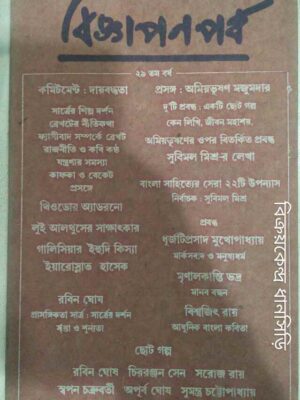 বিজ্ঞাপনপর্ব
২৯ তম বর্ষ
কমিটমেন্ট : দায়বদ্ধতা
সার্ত্রের শিল্প দর্শন
ব্রেখটের নীতিকথা
ফ্যাসীবাদ সম্পর্কে ব্রেখট
রাজনীতি ও কবি কণ্ঠ
যন্ত্রণার সমস্যা
কাফকা ও বেকেট
প্রসঙ্গে
থিওডোর অ্যাডরনো
লুই আলথুসের সাক্ষাৎকার
গালিসিয়ার ইহুদি কিস্যা
ইয়ারোস্লাভ হাসেক
রবিন ঘোষ
প্রাসঙ্গিকতা সার্ত্র : সার্ত্রের দর্শন
সত্তা ও শূন্যতা
প্রসঙ্গ : অমিয়ভূষণ মজুমদার
দু'টি প্রবন্ধ : একটি ছোট গল্প
কেন লিখি, জীবন মহাশয়,
অমিয়ভূষণের ওপর বিতর্কিত প্রবন্ধ
সুবিমল মিশ্র-র লেখা
বাংলা সাহিত্যের সেরা ২২টি উপন্যাস
নির্বাচক : সুবিমল মিশ্র
প্রবন্ধ
ধূর্জটিপ্রসাদ মুখোপাধ্যায়
মার্কসবাদ ও মনুষ্যধর্ম
মৃণালকান্তি ভদ্র
মানব বন্ধন
বিশ্বজিৎ রায়
আধুনিক বাংলা কবিতা
ছোট গল্প
রবিন ঘোষ চিররঞ্জন সেন সরোজ রায়
স্বপন চক্রবর্তী অপূর্ব ঘোষ সুমন্ত চট্টোপাধ্যায়
বিক্রয়কেন্দ্র ধানসিড়ি